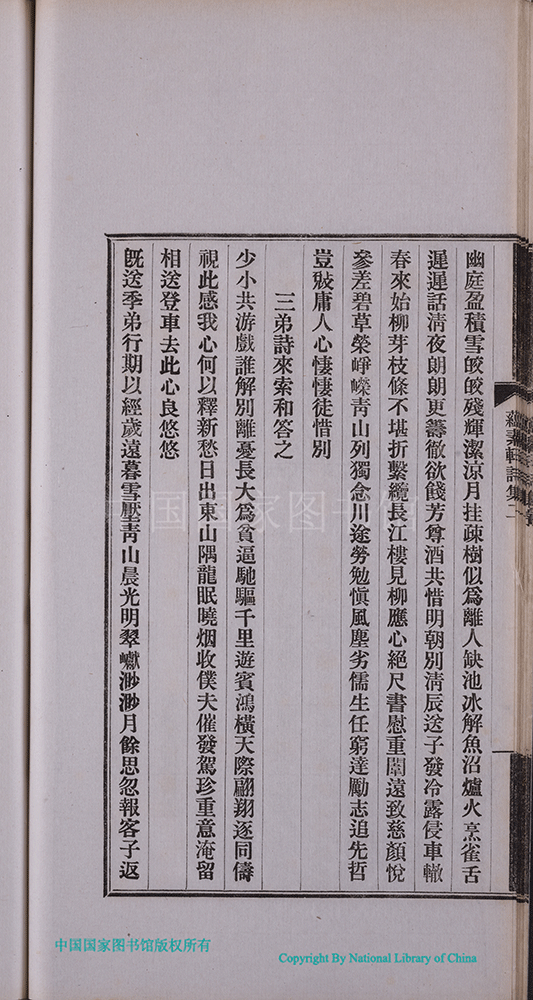 幽庭盈積雪皎皎殘輝潔涼月挂疎樹似爲離人缺池冰解魚沼爐火烹雀舌
遲遲話淸夜朗朗更籌徹欲餞芳尊酒共惜明朝別淸辰送子發冷露侵車轍
春來始柳芽枝條不堪折繫纜長江樓見柳應心絕尺書慰重闈遠致慈顏悅
參差碧草榮崢嶸靑山列獨念川途勞勉愼風塵劣儒生任窮達勵志追先哲
豈敩庸人心悽悽徒惜別
三弟詩來索和答之
少小共游戲誰解別離憂長大爲貧逼馳驅千里遊賓鴻橫天際翩翔逐同儔
視此感我心何以釋新愁日出東山隅龍眠曉烟收僕夫催發駕珍重意淹留
相送登車去此心良悠悠
旣送季弟行期以經歲遠暮雪壓靑山晨光明翠巘渺渺月餘思忽報客子返
蘊素軒詩集二
中国国家图书馆
中国国家图书馆版权所有
Copyright By National Library of China